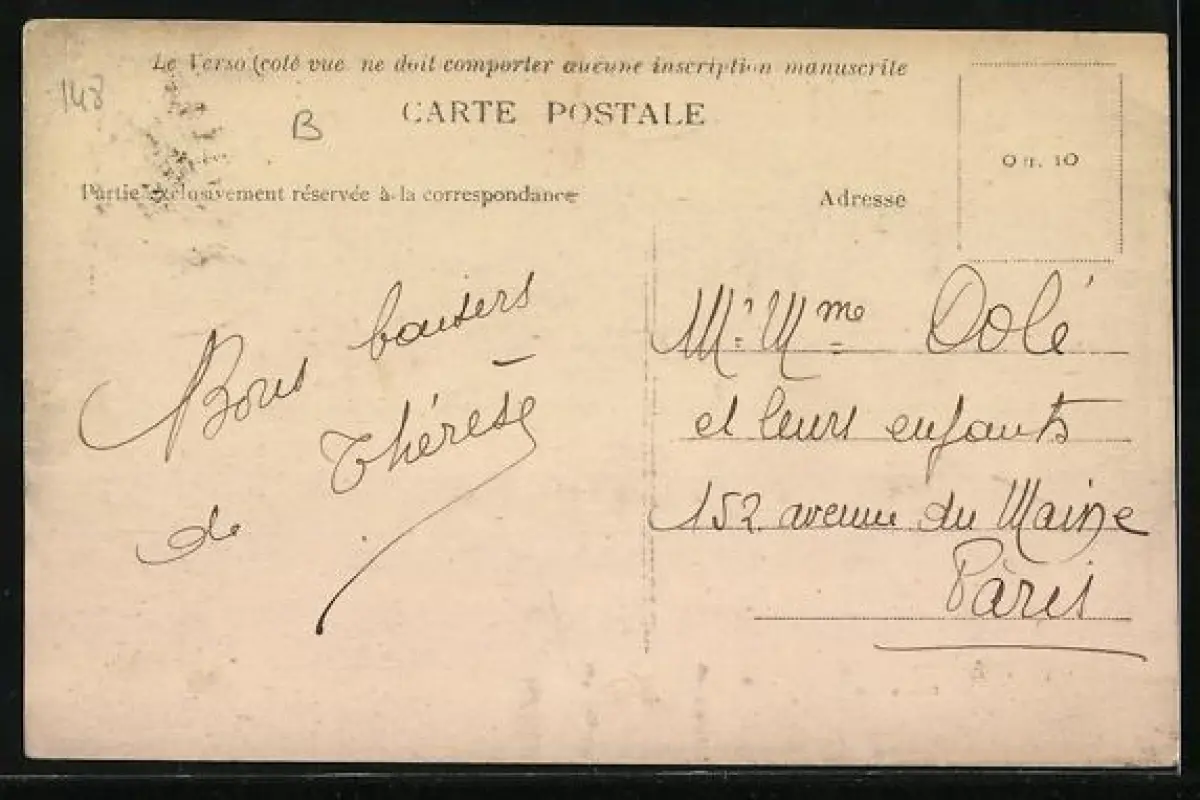 Le Verso (coté vue ne doit comporter aucune inscription manuscrite
148
B
CARTE POSTALE
0 fr. 10
Partie exclusivement réservée à la correspondance
Adresse
Bons baisers
de Thérèse
Mr Mme Dolé
et leurs enfants
152 avenue du Maine
Paris